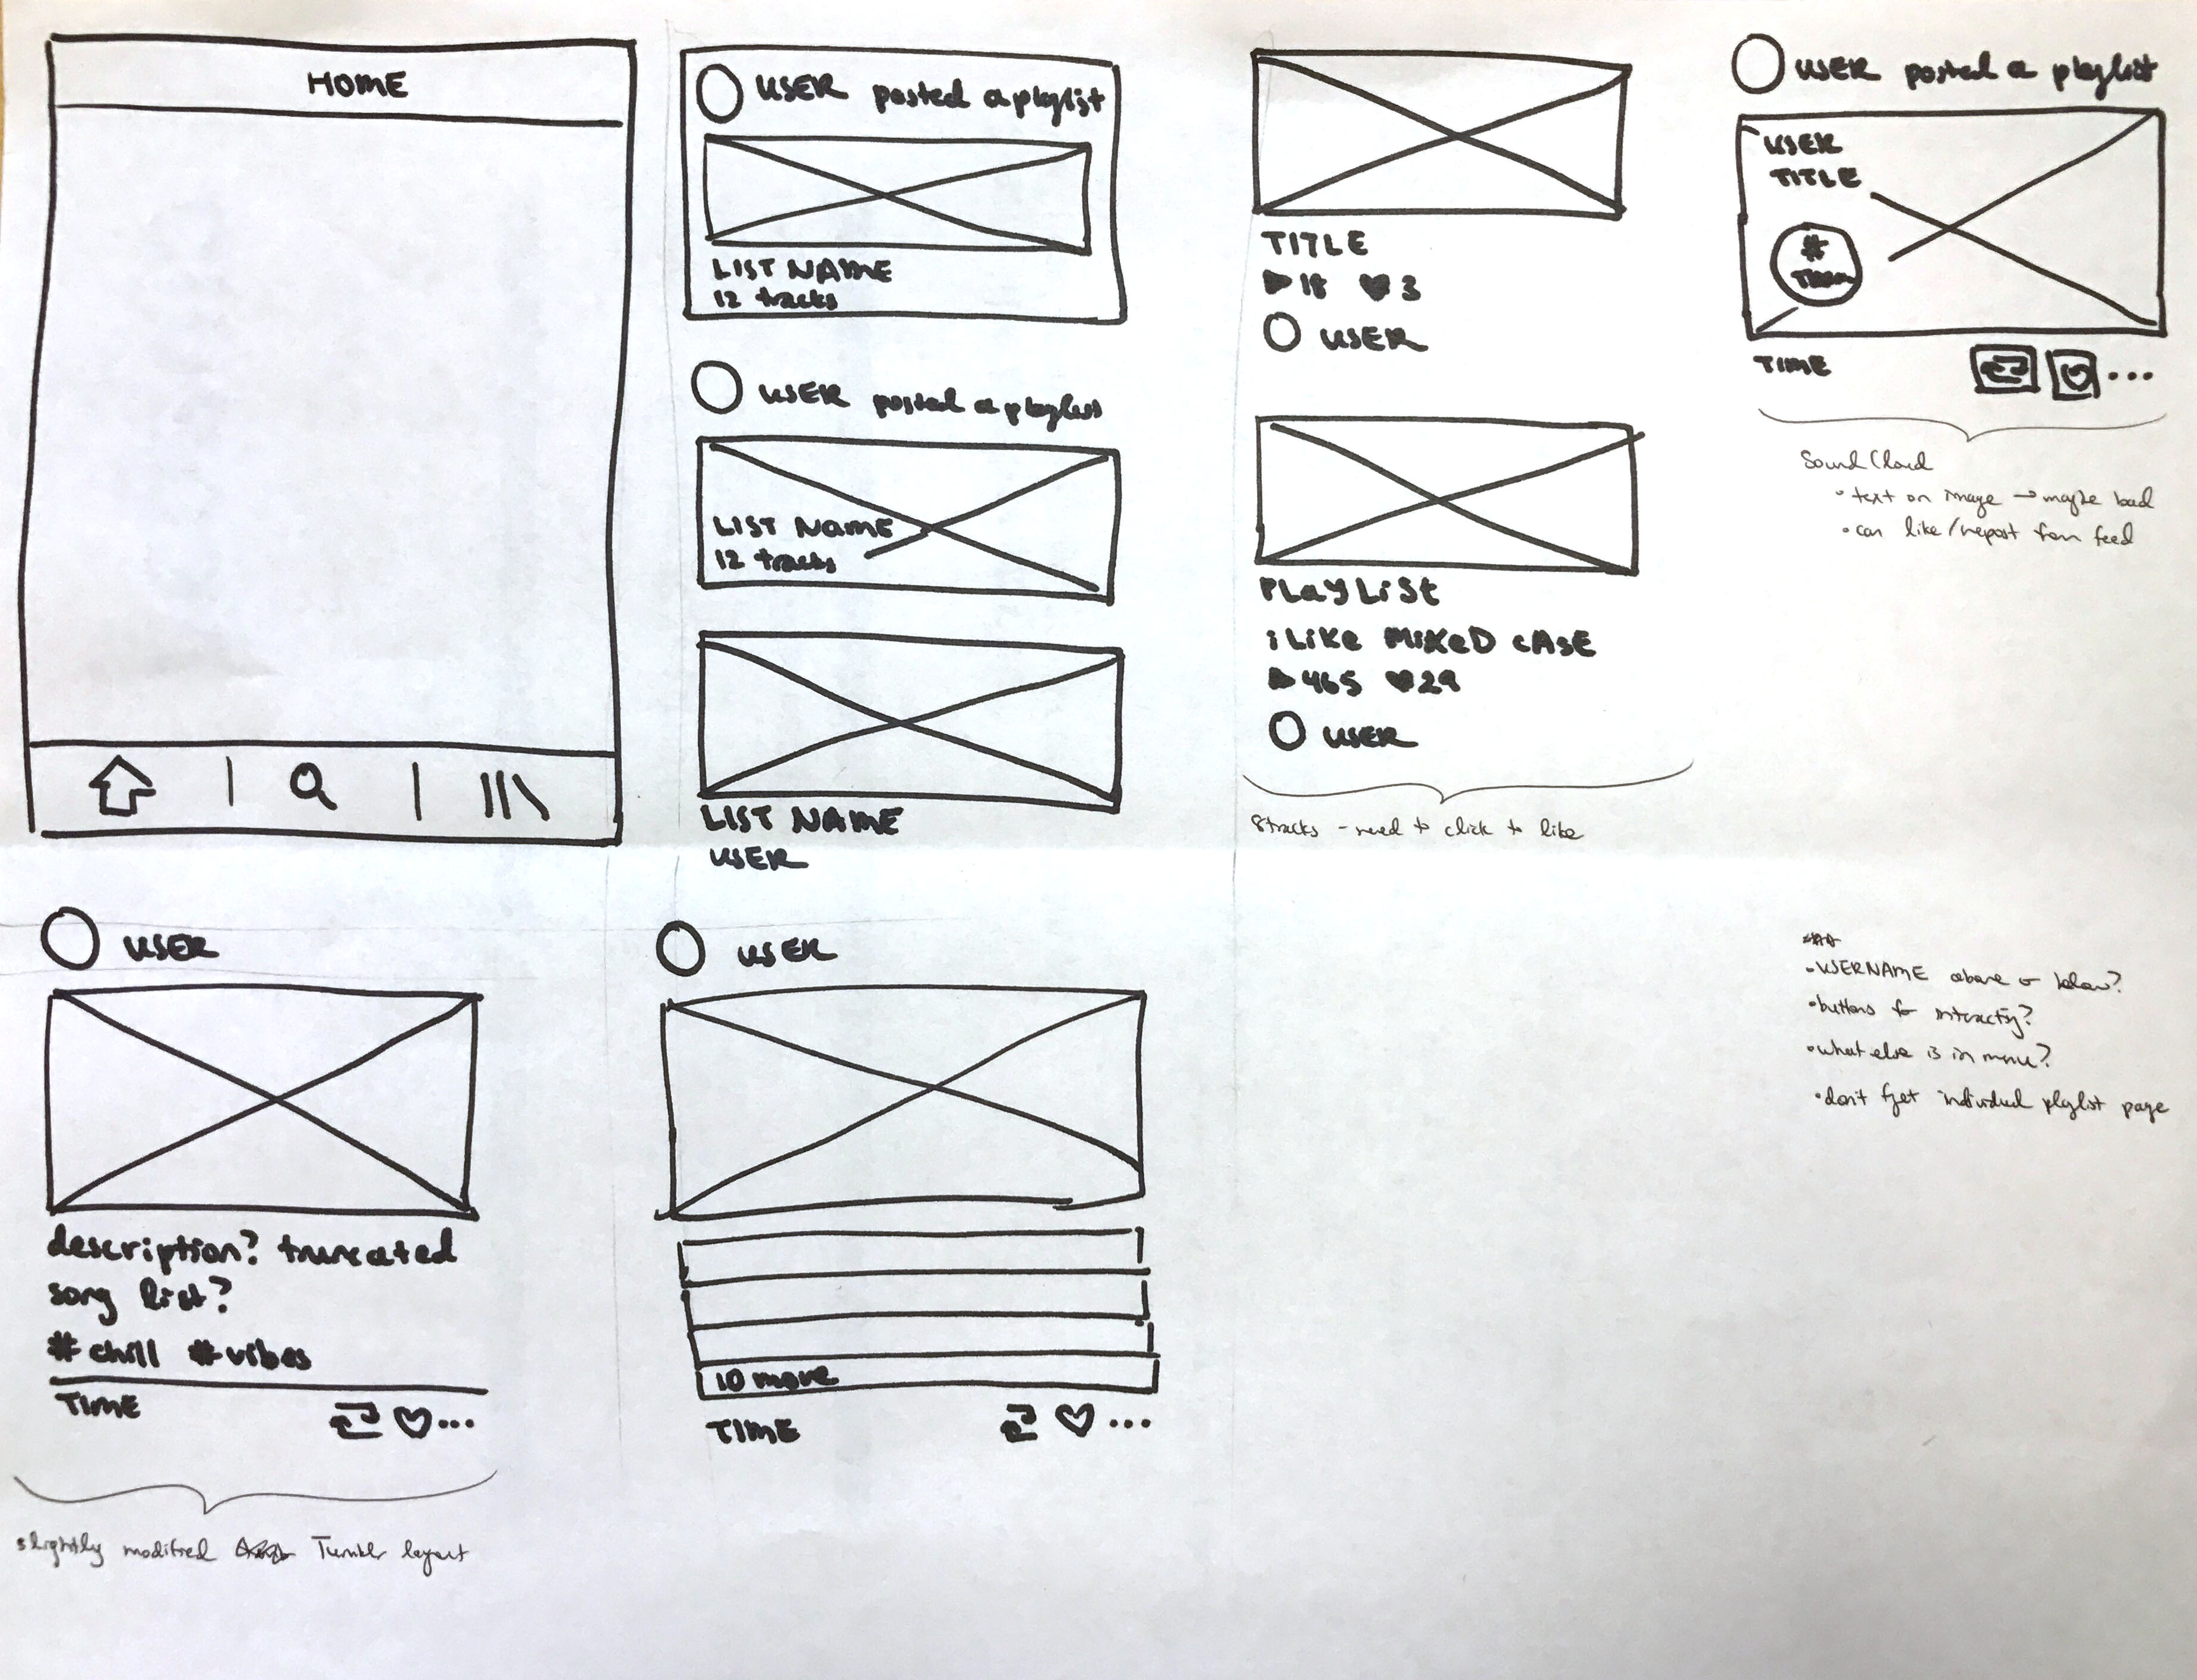 HOME
USER posted a playlist
LIST NAME
12 tracks
USER posted a playlist
LIST NAME
12 tracks
LIST NAME
USER
TITLE
18 3
USER
PLAYLiSt
iLiKe MiXeD cAsE
465 29
USER
8tracks - need to click to like
USER posted a playlist
USER
TITLE
#
TIME
SoundCloud
• text on image → maybe bad
• can like/repost from feed
USER
description? truncated
song list?
#chill #vibes
TIME
slightly modified Tumblr layout
USER
10 more
TIME
• USERNAME above or below?
• buttons for interacting?
• what else is in menu?
• don't forget individual playlist page